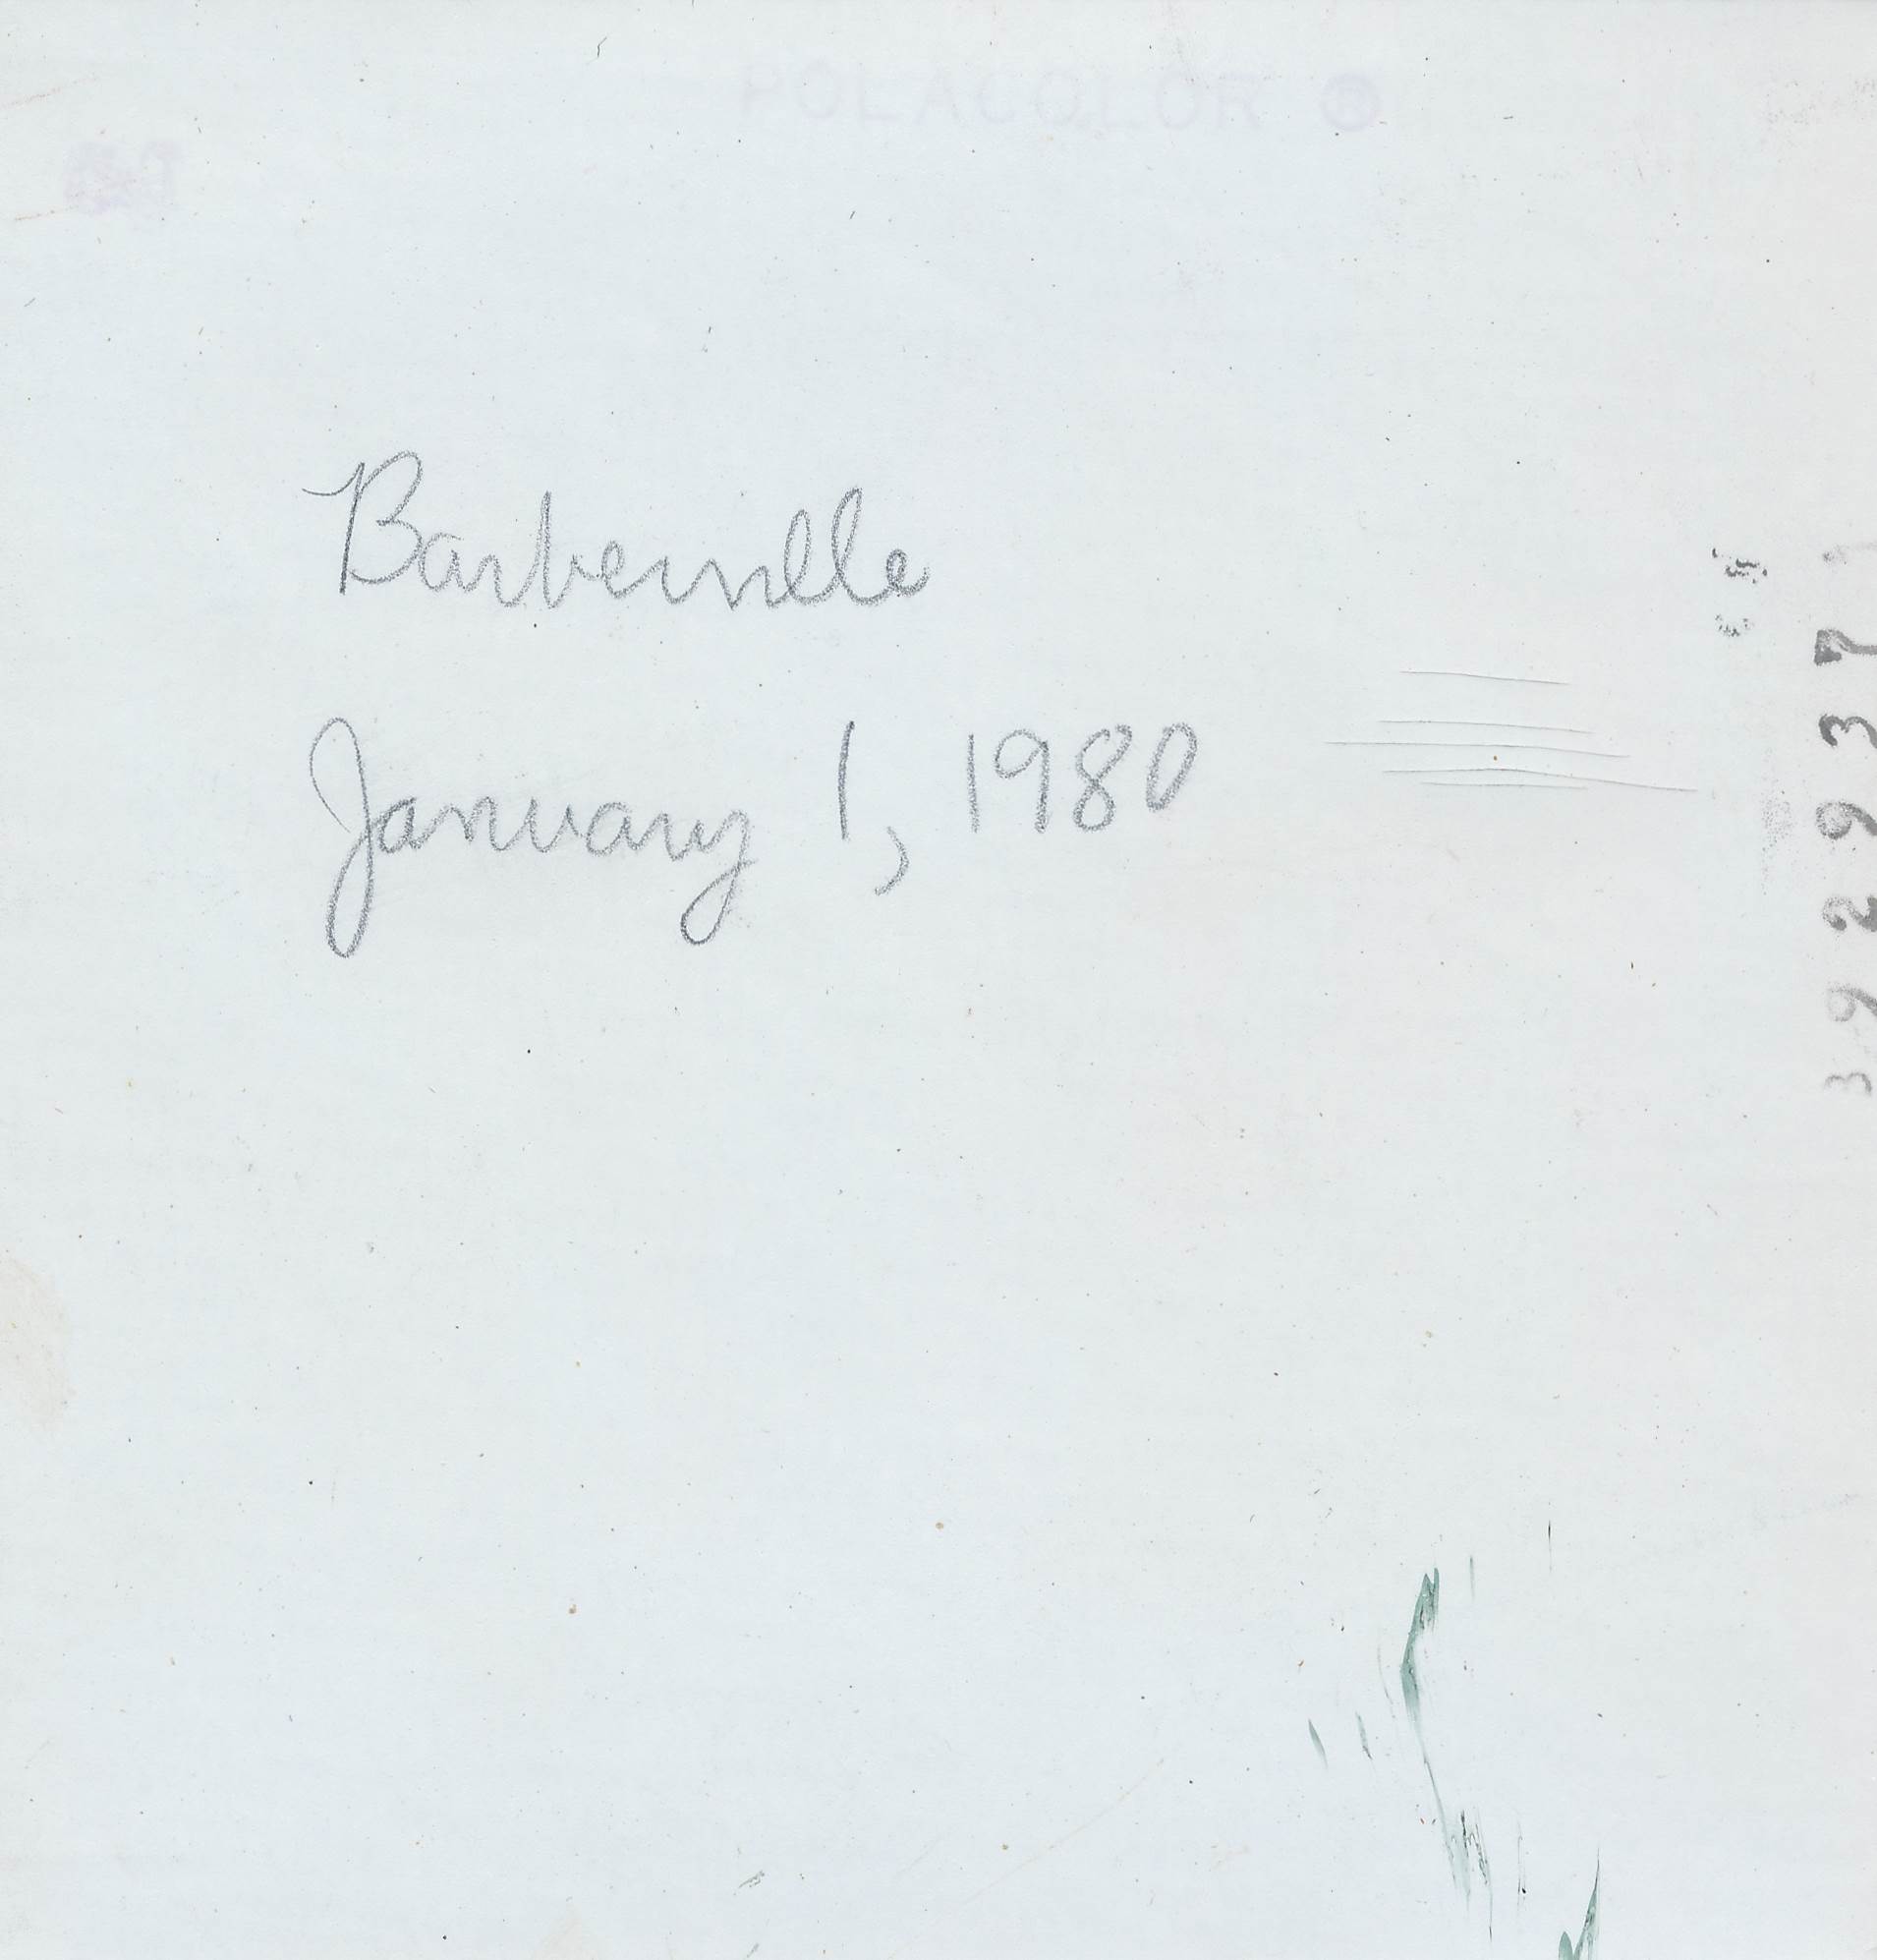 POLACOLOR ®
Barberville
January 1, 1980
392937